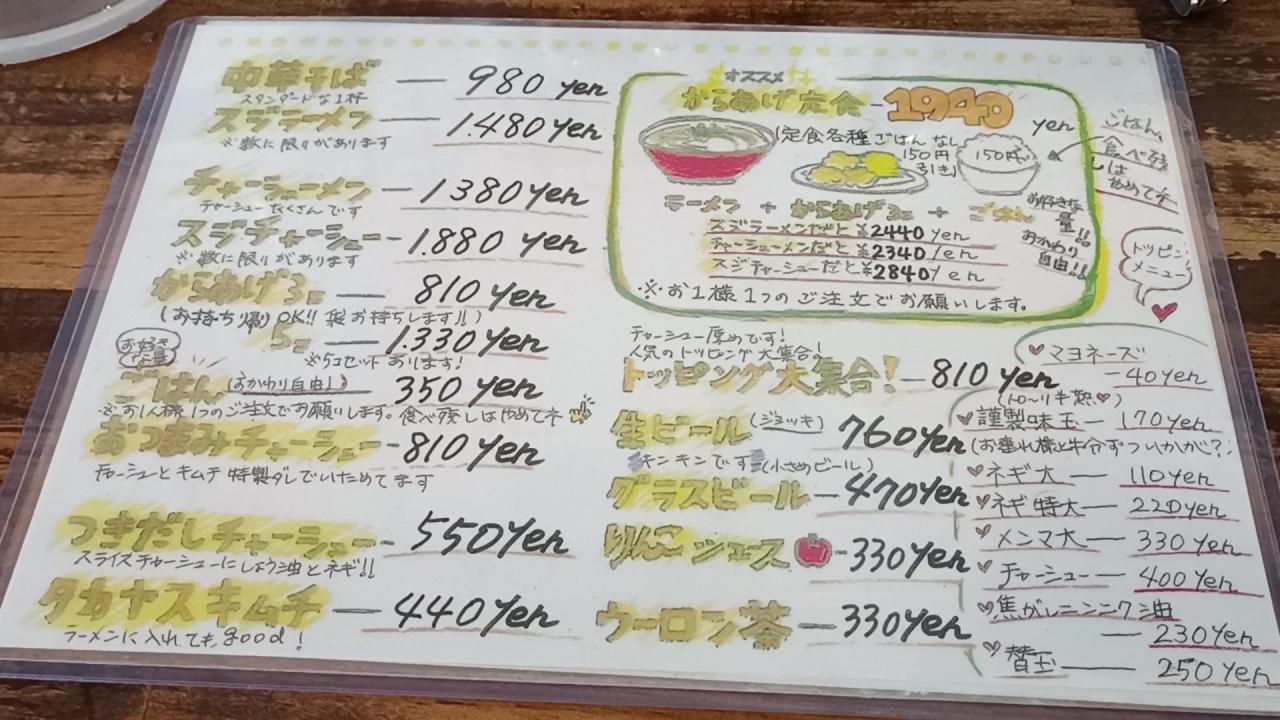 中華そば — 980 yen
スタンダードな1杯
スジラーメン — 1.480 yen
※数に限りがあります
チャーシューメン — 1380 yen
チャーシューたくさんです
スジチャーシュー - 1.880 yen
※数に限りがあります
からあげ3コ — 810 yen
(お持ち帰りOK!! 袋お持ちします!!)
5コ — 1.330 yen
※5コセットあります!
お好きな量
ごはん(おかわり自由!) 350 yen
※お1人様1つのご注文でお願いします。食べ残しはやめてネ
おつまみチャーシュー - 810 yen
チャーシューとキムチ 特製ダレでいためてます
つきだしチャーシュー - 550 yen
スライスチャーシューにしょう油とネギ!!
タカヤスキムチ — 440 yen
ラーメンに入れても good!
オススメ
からあげ定食 - 1940 yen
(定食各種ごはんなし
150円
引き)
150円
ごはん
食べ残
しは
やめてネ
ラーメン + からあげ3コ + ごはん
お好きな
量!!
おかわり
自由!!
スジラーメンだと ¥2440 yen
チャーシューメンだと ¥2340 yen
スジチャーシューだと ¥2840 yen
※お1様1つのご注文でお願いします。
チャーシュー厚めです!
人気のトッピング大集合!
トッピング大集合! — 810 yen
生ビール(ジョッキ) 760 yen
キンキンです (小さめビール)
グラスビール — 470 yen
りんごジュース - 330 yen
ウーロン茶 — 330 yen
トッピン
メニュー
マヨネーズ
- 40 yen
(トロ〜リ半熟♡)
謹製味玉 — 170 yen
(お連れ様と半分ずついかが?)
ネギ大 — 110 yen
ネギ特大 — 220 yen
メンマ大 — 330 yen
チャーシュー — 400 yen
焦がしニンニク油
— 230 yen
替玉 — 250 yen